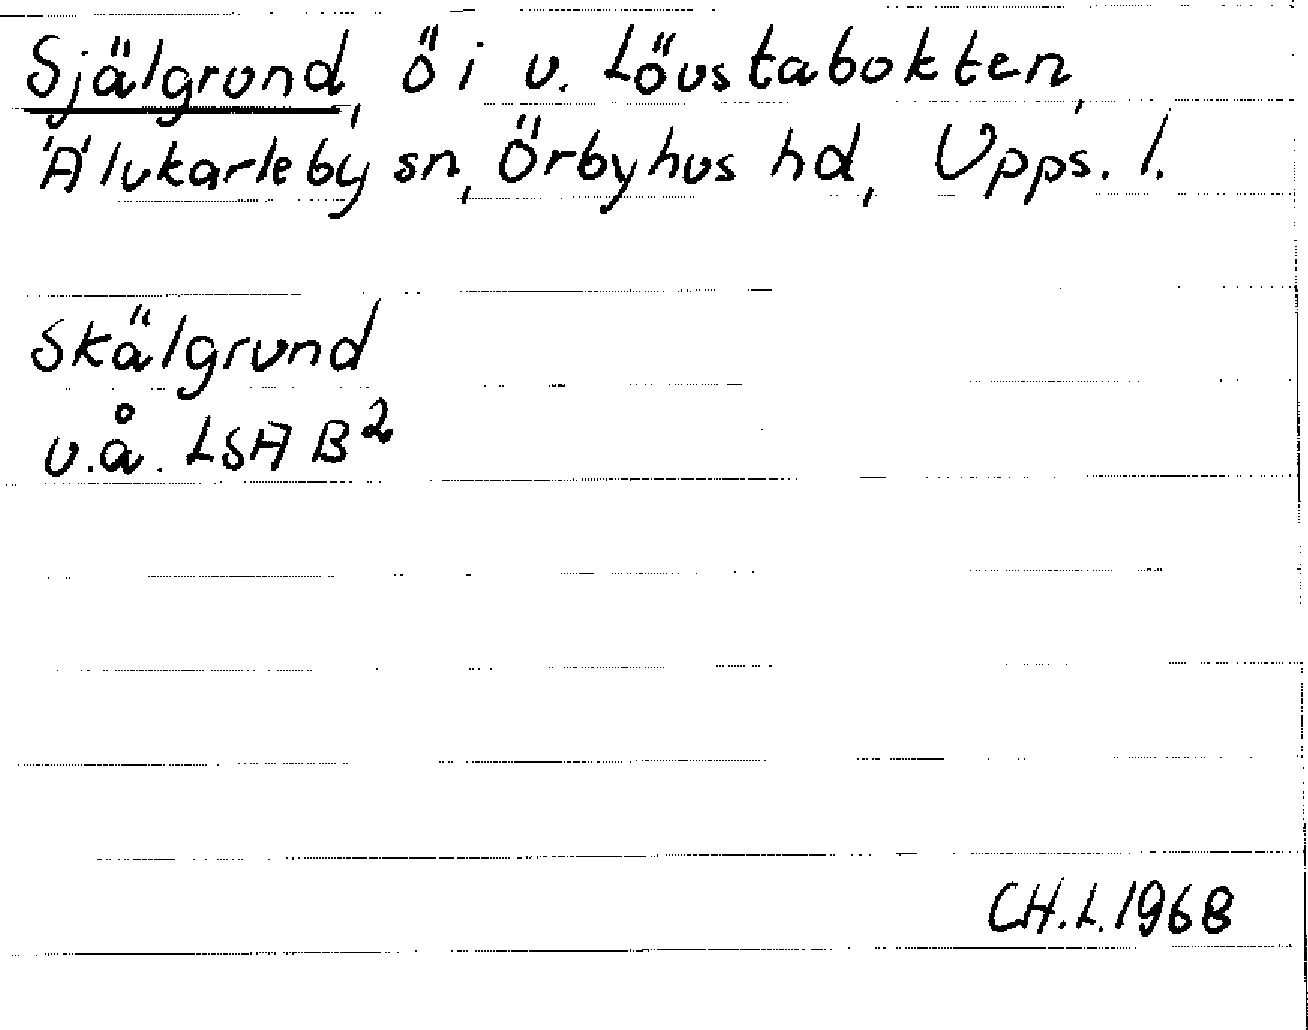 Själgrund, ö i v. Lövstabukten,
Älvkarleby sn, Örbyhus hd, Upps. l.
Skälgrund
u.å. LSA B²
CH.L.1968